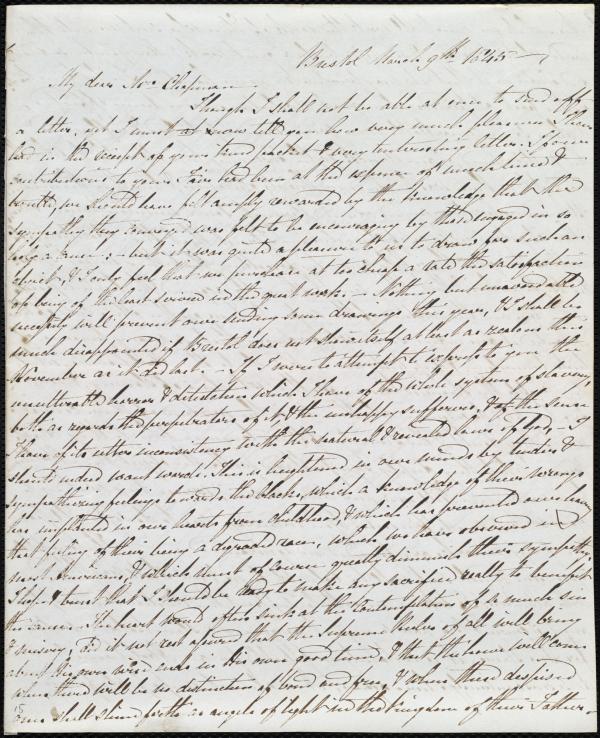 Bristol March 9th 1845
My dear Mrs Chapman,
Though I shall not be able at once to send off
a letter, yet I must now tell you how very much pleasure I have
had in the receipt of your kind packet & very interesting letter. If our
contributions to yours Fair had been at the expense of much time &
trouble, we should have felt amply rewarded by the knowledge that the
sympathy they conveyed was felt to be encouraging by those engaged in so
holy a cause; – but it was quite a pleasure to us to draw for such an
object, & I only feel that we purchase at too cheap a rate the satisfaction
of being of the least service in the great work. – Nothing but unavoidable
necessity will prevent our sending some drawings this year, & I shall be
much disappointed if Bristol does not show itself at least as zealous this
November as it did last. – If I were to attempt to express to you the
unutterable horror & detestation which I have of the whole system of slavery,
both as regards the perpetrators of it, & the unhappy sufferers, & of the sense
I have of its utter inconsistency with the natural & revealed laws of God, – I
should indeed want words. This is heightened in our minds by tender &
sympathizing feelings towards the blacks, which a knowledge of their wrongs
has implanted in our hearts from childhood, & which has prevented our having
that feeling of their being a degraded race, which we have observed in
most Americans, & which must of course greatly diminish their sympathy.
I hope & trust that I should be ready to make any sacrifice really to benefit
the cause. The heart would often sink at the contemplation of so much sin
& misery, did it not rest assured that the Supreme Ruler of all will bring
about his own wise ends in His own good time, & that the hour will come
when there will be no distinction of bond and free, & when these despised
ones shall shine forth as angels of light in the kingdom of their Father. –
15